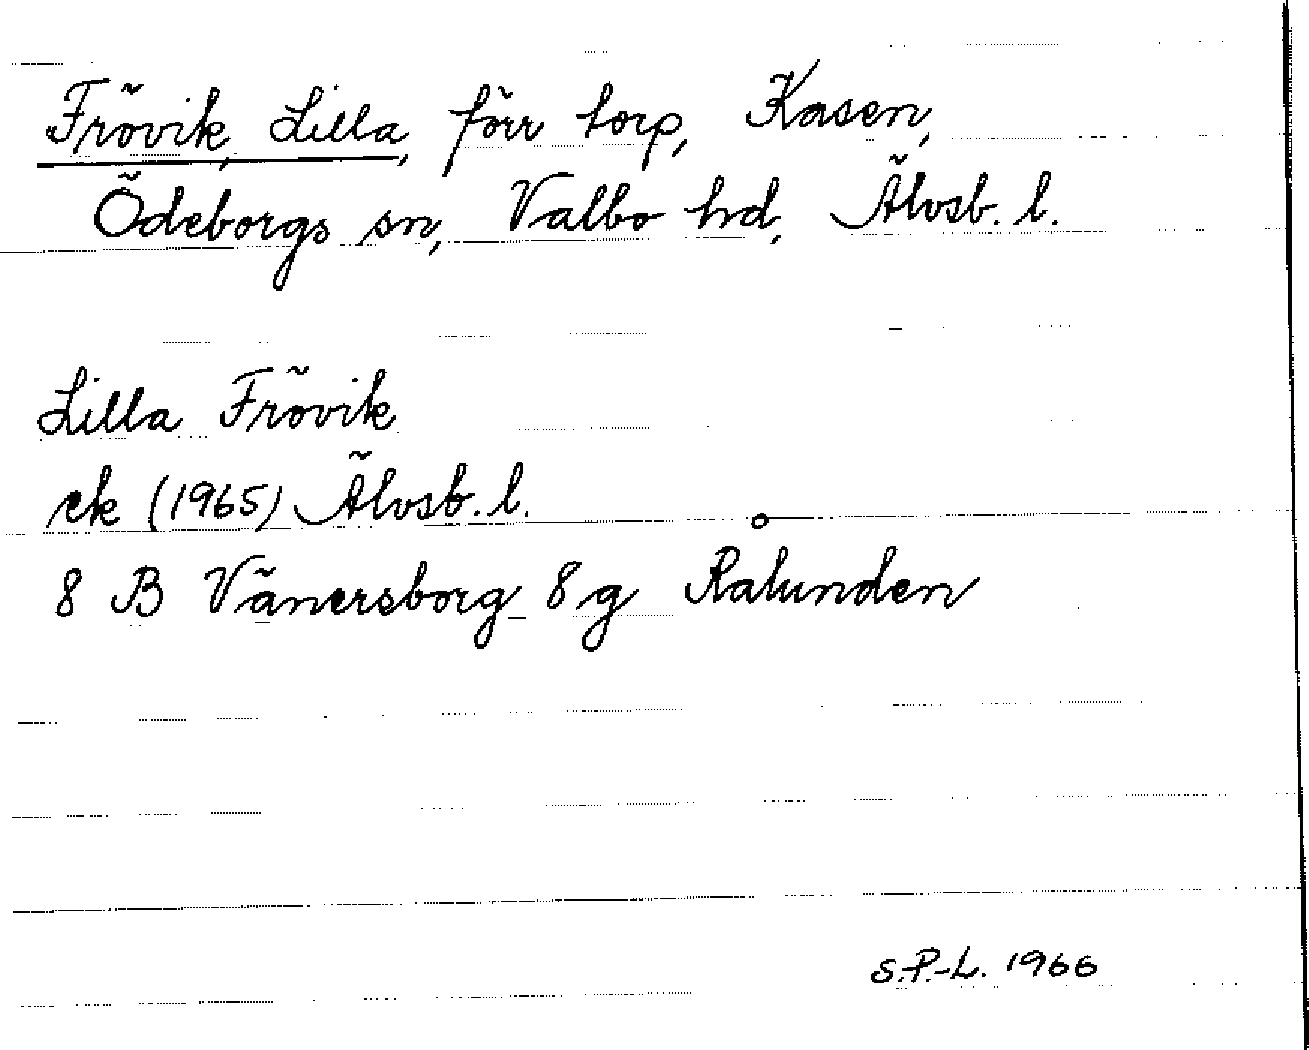 Frövik, Lilla, förr torp, Kasen,
Ödeborgs sn, Valbo hd, Älvsb. l.
Lilla Frövik
ek (1965) Älvsb. l.
8 B Vänersborg 8 g Ralunden
S.P.-L. 1966